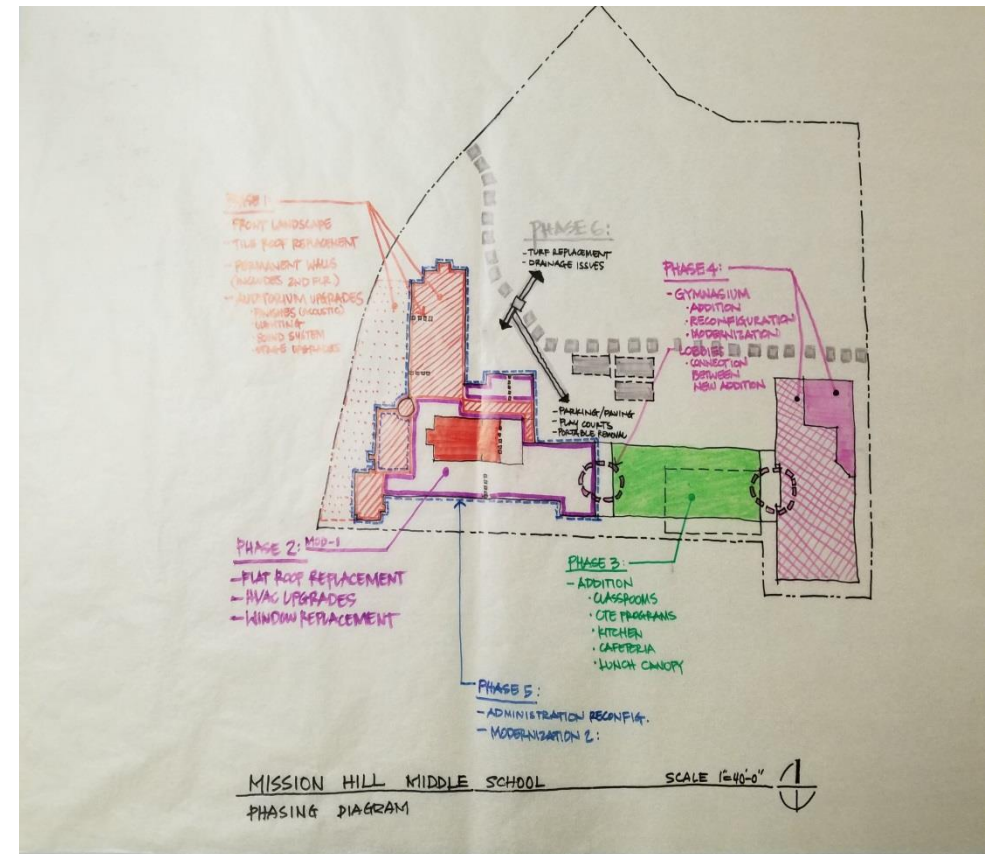 PHASE 1:
FRONT LANDSCAPE
- TILE ROOF REPLACEMENT
- PERMANENT WALLS
(INCLUDES 2ND FLR.)
- AUDITORIUM UPGRADES
· FINISHES (ACOUSTIC)
· LIGHTING
· SOUND SYSTEM
· STAGE UPGRADES
PHASE 6:
- TURF REPLACEMENT
- DRAINAGE ISSUES
- PARKING/PAVING
- PLAY COURTS
- PORTABLE REMOVAL
PHASE 4:
- GYMNASIUM
· ADDITION
· RECONFIGURATION
· MODERNIZATION
- LOBBIES
· CONNECTION
BETWEEN
NEW ADDITION
PHASE 2: MOD-1
- FLAT ROOF REPLACEMENT
- HVAC UPGRADES
- WINDOW REPLACEMENT
PHASE 3:
- ADDITION
· CLASSROOMS
· CTE PROGRAMS
· KITCHEN
· CAFETERIA
· LUNCH CANOPY
PHASE 5:
- ADMINISTRATION RECONFIG.
- MODERNIZATION 2:
MISSION HILL MIDDLE SCHOOL
SCALE 1"=40'-0"
PHASING DIAGRAM